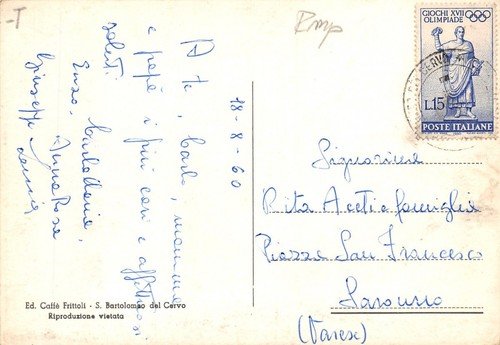 -T
Rmp
GIOCHI XVII
OLIMPIADE
L.15
POSTE ITALIANE
CERVO
18-8-60
A te, Carla, mamma
e papà i più cari e affettuosi
saluti.
Enzo,
Annarosa
Giuseppe
Signorina
Rita Aceti e famiglia
Piazza San Francesco
Saronno
(Varese)
Ed. Caffè Frittoli - S. Bartolomeo del Cervo
Riproduzione vietata